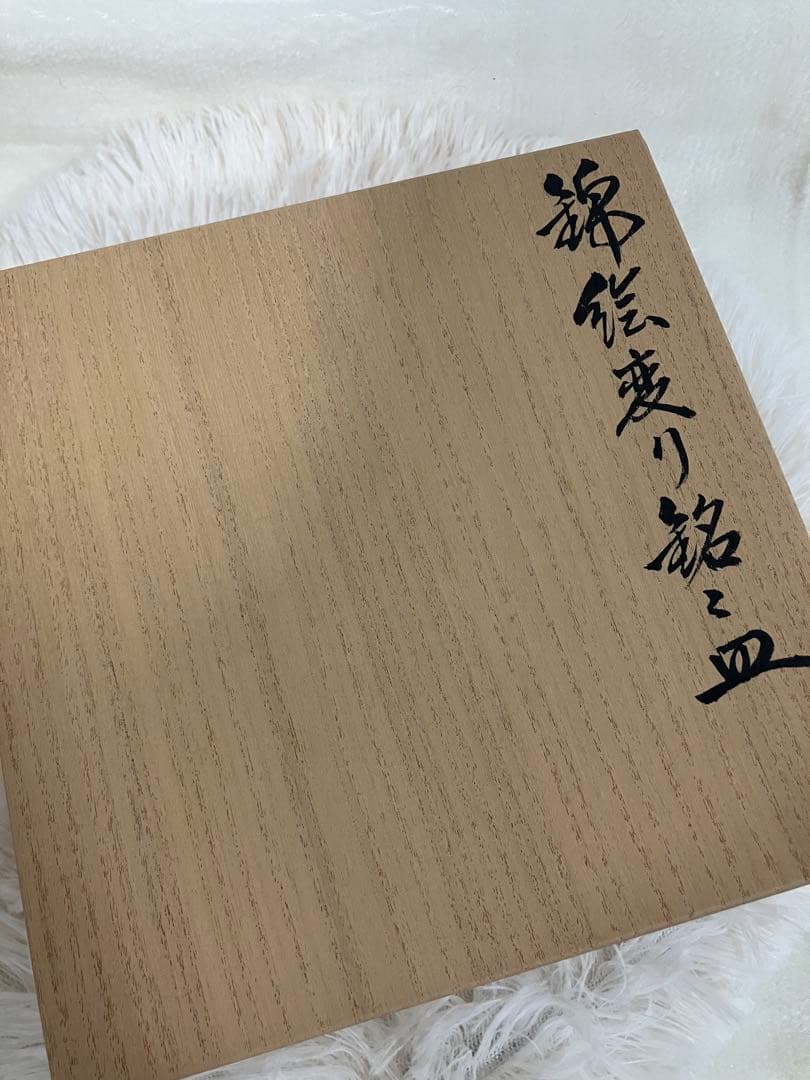 錦絵変り銘〻皿